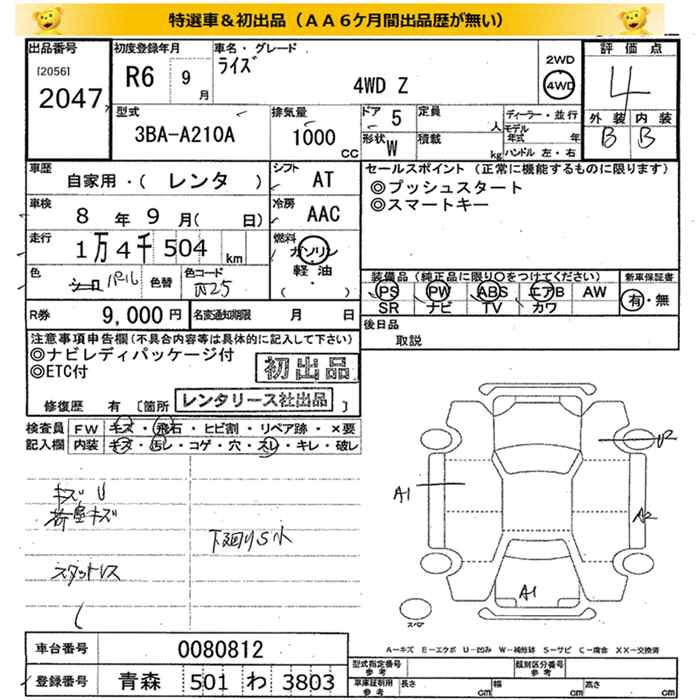 特選車＆初出品（ＡＡ６ケ月間出品歴が無い）
出品番号
[2056]
2047
初度登録年月
R6 9月
車名・グレード
ライズ
4WD Z
2WD
4WD
評価点
4
外装 内装
B B
型式
3BA-A210A
排気量
1000 CC
ドア 5
形状 W
定員 人
積載 kg
ディーラー・並行
モデル年式 年
ハンドル 左・右
車歴
自家用・( レンタ )
シフト
AT
車検
8 年 9 月( 日)
冷房
AAC
走行
1万4千504 km
燃料
ガソリン
軽・油
色
パール
色替
色コード
W25
R券
9,000 円
名変通知期限 月 日
セールスポイント（正常に機能するものに限ります）
◎プッシュスタート
◎スマートキー
装備品（純正品に限り○をつけてください）
PS PW ABS エアB AW
SR ナビ TV カワ
新車保証書
有・無
後日品
取説
注意事項申告欄(不具合内容等は具体的に記入して下さい)
◎ナビレディパッケージ付
◎ETC付
初出品
レンタリース社出品
修復歴 有 [箇所 ]
検査員記入欄
FW キズ・飛石・ヒビ割・リペア跡・×要
内装 キズ・汚レ・コゲ・穴・スレ・キレ・破レ
キズ U
荷室キズ
下廻りS小
スタットレス
A1
U2
A2
A1
スペア
A－キズ E－エクボ U－凹み W－補修跡 S－サビ C－腐合 XX－交換済
車台番号 0080812
登録番号 青森 501 わ 3803
型式指定番号 参考
類別区分番号 参考
車庫証明用 参考
長さ cm 幅 cm 高さ cm